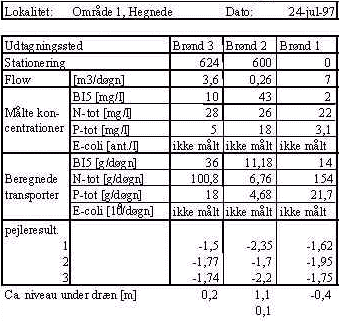 Lokalitet: Område 1, Hegnede Dato: 24-jul-97
Udtagningssted Brønd 3 Brønd 2 Brønd 1
Stationering 624 600 0
Flow [m3/døgn] 3,6 0,26 7
BI5 [mg/l] 10 43 2
Målte kon- N-tot [mg/l] 28 26 22
centrationer P-tot [mg/l] 5 18 3,1
E-coli [ant./l] ikke målt ikke målt ikke målt
BI5 [g/døgn] 36 11,18 14
Beregnede N-tot [g/døgn] 100,8 6,76 154
transporter P-tot [g/døgn] 18 4,68 21,7
E-coli [10 /døgn] ikke målt ikke målt ikke målt
pejleresult.
1 -1,5 -2,35 -1,62
2 -1,77 -1,7 -1,95
3 -1,74 -2,2 -1,75
Ca. niveau under dræn [m] 0,2 1,1 -0,4
0,1